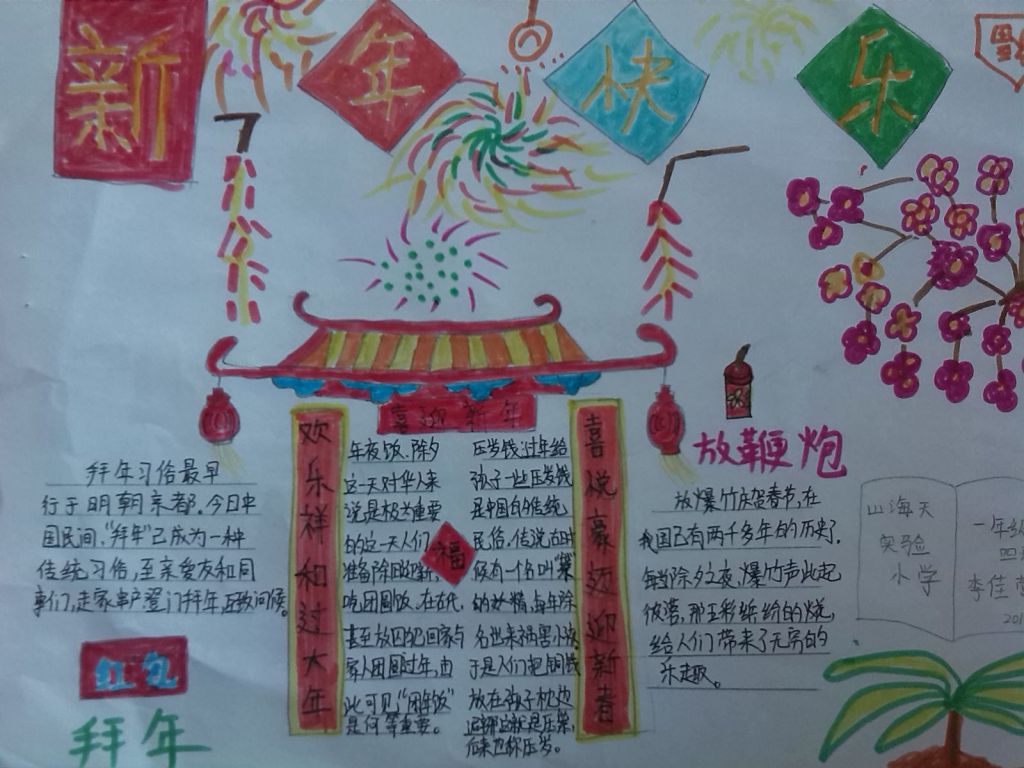 新年快乐
喜迎新年
欢乐祥和过大年
年夜饭、除夕
这一天对华人来
说是极为重要
的这一天人们
准备除旧迎新，
吃团圆饭。在古代，
甚至放囚犯回家与
家人团圆过年，由
此可见“团年饭”
是何等重要。
福
压岁钱：过年给
孩子一些压岁钱
是中国的传统
民俗，传说古时
候有一个名叫“祟”
的妖精，每年除
于是人们把铜钱
放在孩子枕边
后来也称压岁。
拜年习俗最早
行于明朝京都。今日中
国民间，“拜年”已成为一种
传统习俗，至亲爱友和同
事们，走家串户登门拜年，互致问候。
红包
拜年
放鞭炮
放爆竹庆贺春节，在
我国已有两千多年的历史了。
每当除夕之夜，爆竹声此起
彼落，那五彩缤纷的烧，
给人们带来了无穷的
乐趣。
山海天
实验
小学
一年级
李佳
201